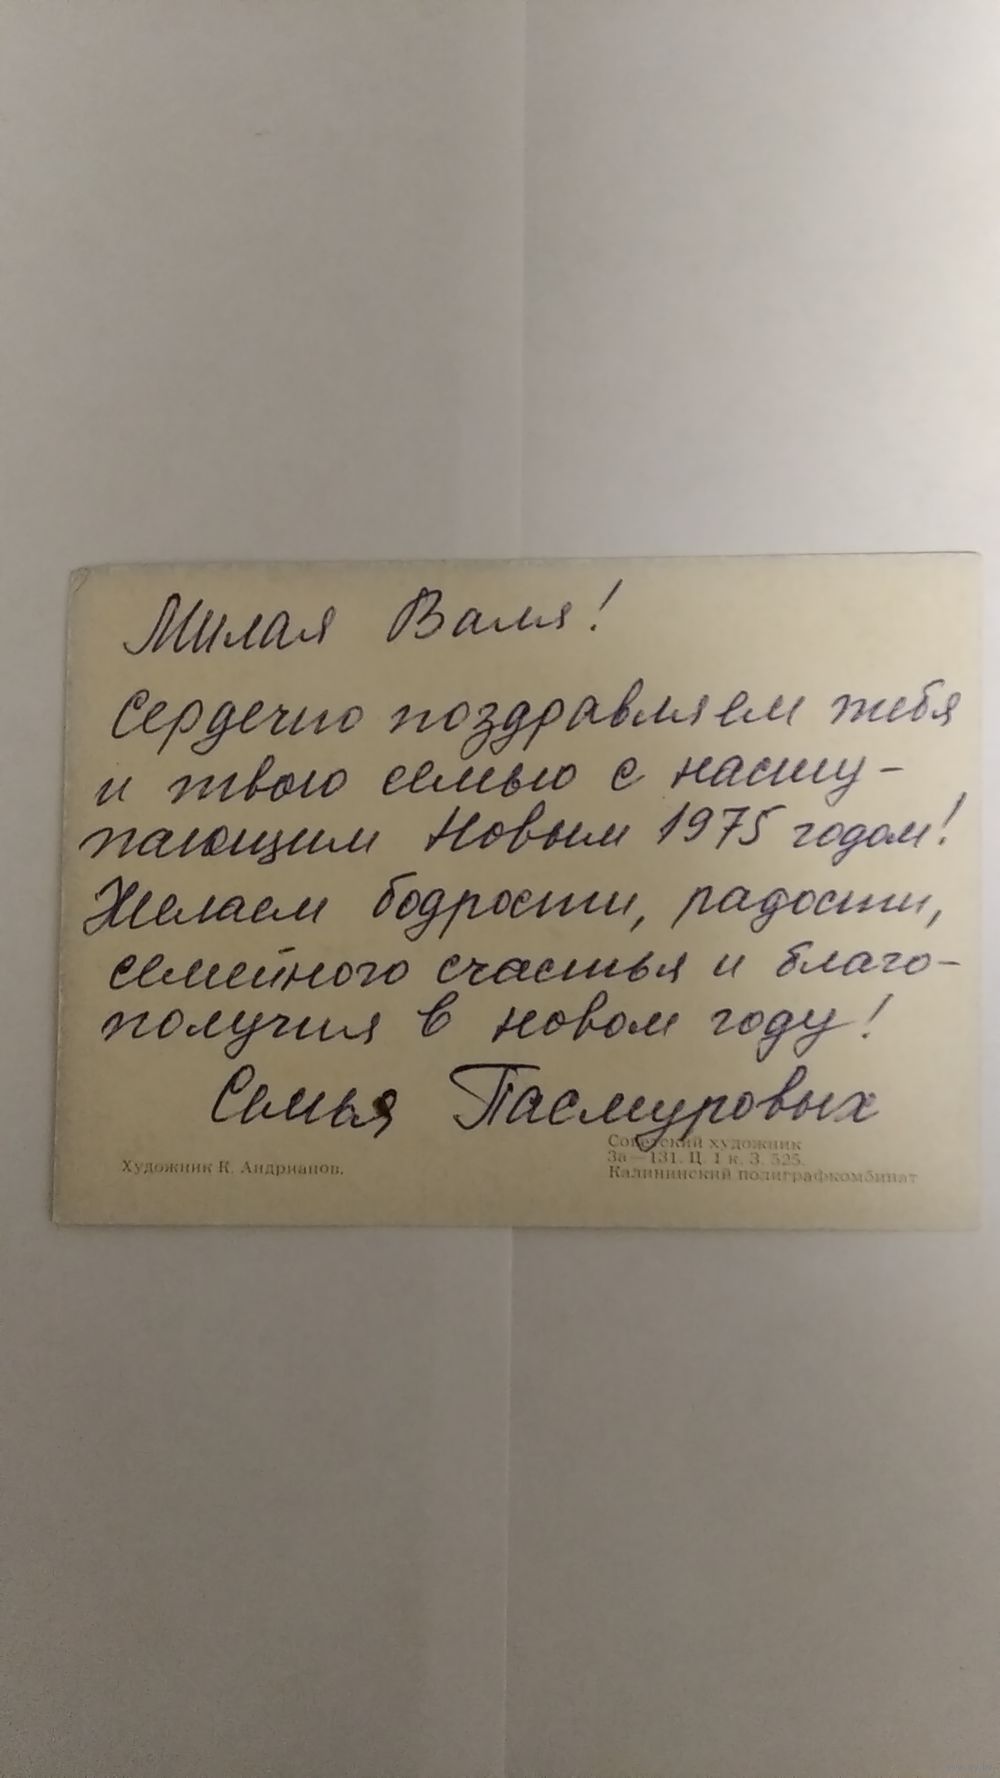 Милая Валя!
Сердечно поздравляем тебя
и твою семью с насту-
пающим Новым 1975 годом!
Желаем бодрости, радости,
семейного счастья и благо-
получия в новом году!
Семья Пасмуровых
Художник К. Андрианов.
Советский художник
За—131. Ц. 1 к. З. 525.
Калининский полиграфкомбинат